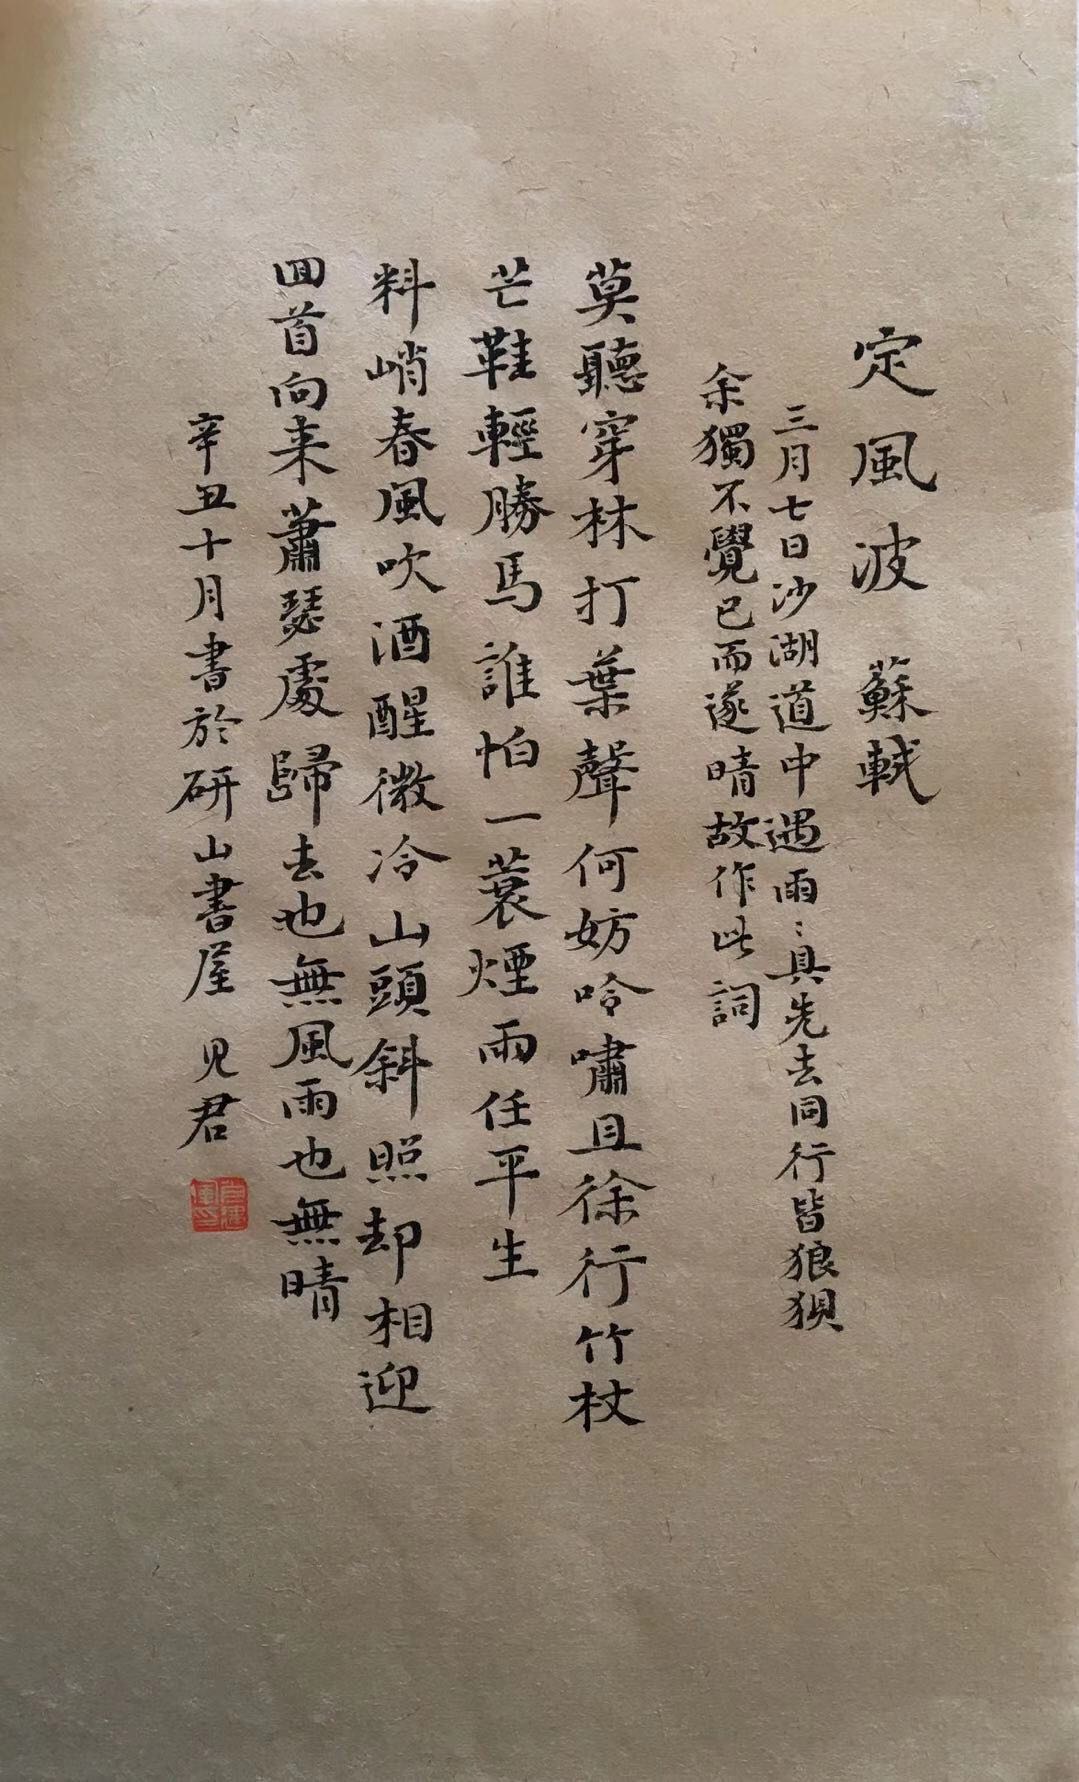 定風波 蘇軾
三月七日沙湖道中遇雨〻具先去同行皆狼狽
余獨不覺已而遂晴故作此詞
莫聽穿林打葉聲何妨吟嘯且徐行竹杖
芒鞋輕勝馬誰怕一蓑煙雨任平生
料峭春風吹酒醒微冷山頭斜照却相迎
回首向来蕭瑟處歸去也無風雨也無晴
辛丑十月書於研山書屋 見君